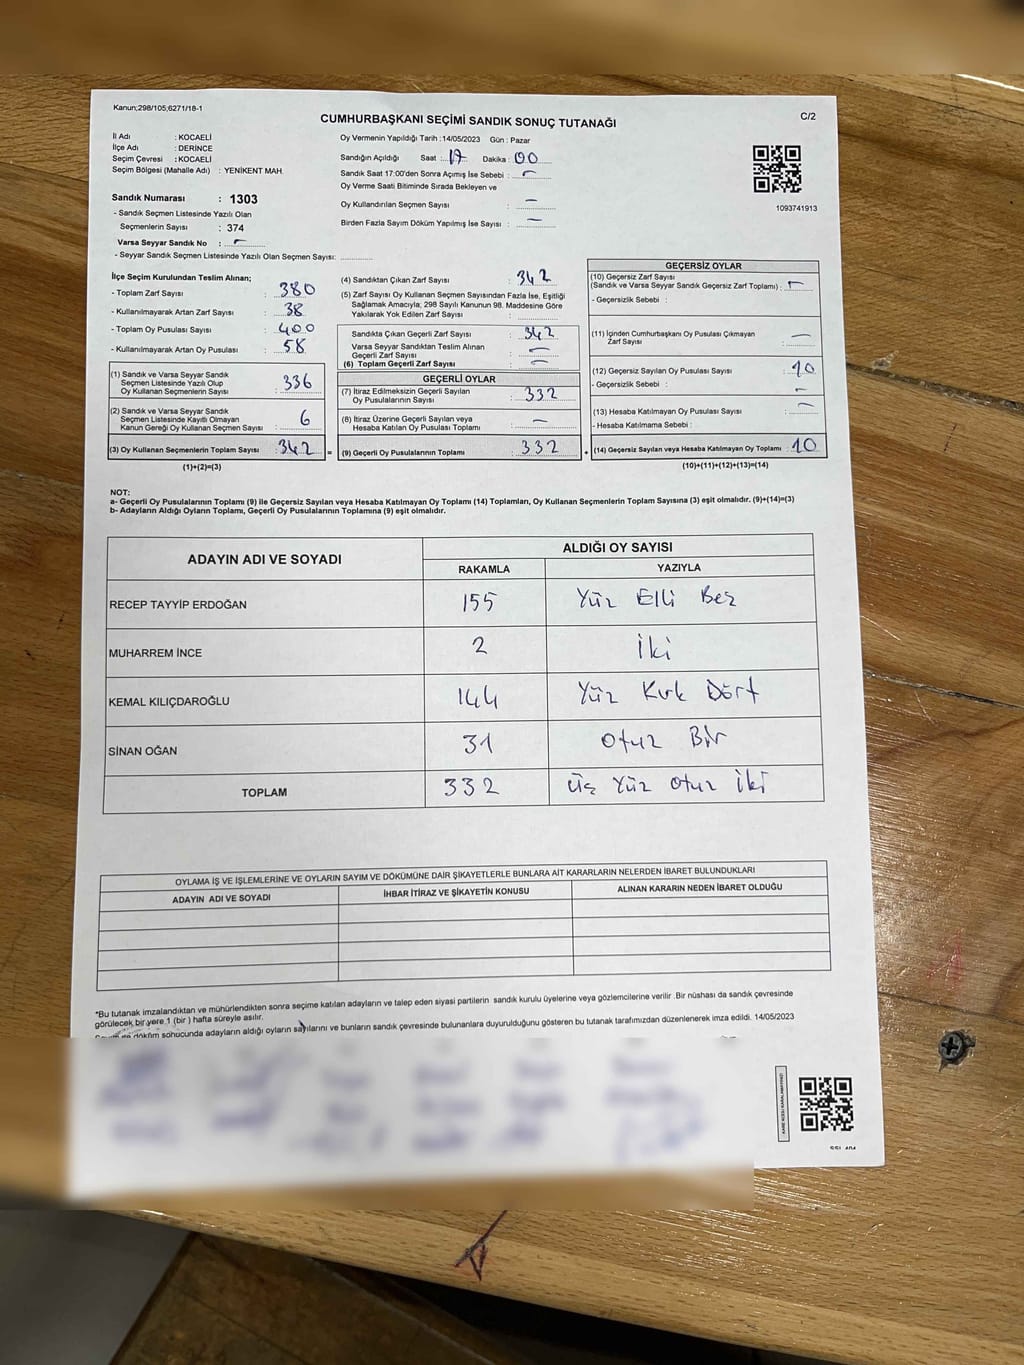 Kanun;298/105;6271/18-1
CUMHURBAŞKANI SEÇİMİ SANDIK SONUÇ TUTANAĞI
C/2
İl Adı : KOCAELİ
İlçe Adı : DERİNCE
Seçim Çevresi : KOCAELİ
Seçim Bölgesi (Mahalle Adı) : YENİKENT MAH.
Sandık Numarası : 1303
- Sandık Seçmen Listesinde Yazılı Olan
Seçmenlerin Sayısı : 374
Varsa Seyyar Sandık No : -
- Seyyar Sandık Seçmen Listesinde Yazılı Olan Seçmen Sayısı:
Oy Vermenin Yapıldığı Tarih :14/05/2023 Gün : Pazar
Sandığın Açıldığı Saat : 17 Dakika : 00
Sandık Saat 17:00'den Sonra Açımış İse Sebebi : -
Oy Verme Saati Bitiminde Sırada Bekleyen ve
Oy Kullandırılan Seçmen Sayısı : -
Birden Fazla Sayım Döküm Yapılmış İse Sayısı : -
1093741913
İlçe Seçim Kurulundan Teslim Alınan;
- Toplam Zarf Sayısı : 380
- Kullanılmayarak Artan Zarf Sayısı : 38
- Toplam Oy Pusulası Sayısı : 400
- Kullanılmayarak Artan Oy Pusulası : 58
(1) Sandık ve Varsa Seyyar Sandık
Seçmen Listesinde Yazılı Olup
Oy Kullanan Seçmenlerin Sayısı : 336
(2) Sandık ve Varsa Seyyar Sandık
Seçmen Listesinde Kayıtlı Olmayan
Kanun Gereği Oy Kullanan Seçmen Sayısı : 6
(3) Oy Kullanan Seçmenlerin Toplam Sayısı : 342 =
(1)+(2)=(3)
(4) Sandıktan Çıkan Zarf Sayısı : 342
(5) Zarf Sayısı Oy Kullanan Seçmen Sayısından Fazla İse, Eşitliği
Sağlamak Amacıyla; 298 Sayılı Kanunun 98. Maddesine Göre
Yakılarak Yok Edilen Zarf Sayısı :
Sandıkta Çıkan Geçerli Zarf Sayısı : 342
Varsa Seyyar Sandıktan Teslim Alınan
Geçerli Zarf Sayısı : -
(6) Toplam Geçerli Zarf Sayısı : -
GEÇERLİ OYLAR
(7) İtiraz Edilmeksizin Geçerli Sayılan
Oy Pusulasının Sayısı : 332
(8) İtiraz Üzerine Geçerli Sayılan veya
Hesaba Katılan Oy Pusulası Toplamı : -
(9) Geçerli Oy Pusulalarının Toplamı : 332 +
GEÇERSİZ OYLAR
(10) Geçersiz Zarf Sayısı
(Sandık ve Varsa Seyyar Sandık Geçersiz Zarf Toplamı) : -
- Geçersizlik Sebebi :
(11) İçinden Cumhurbaşkanı Oy Pusulası Çıkmayan
Zarf Sayısı : -
(12) Geçersiz Sayılan Oy Pusulası Sayısı : 10
- Geçersizlik Sebebi : -
(13) Hesaba Katılmayan Oy Pusulası Sayısı : -
- Hesaba Katılmama Sebebi :
(14) Geçersiz Sayılan veya Hesaba Katılmayan Oy Toplamı : 10
(10)+(11)+(12)+(13)=(14)
NOT:
a- Geçerli Oy Pusulalarının Toplamı (9) ile Geçersiz Sayılan veya Hesaba Katılmayan Oy Toplamı (14) Toplamları, Oy Kullanan Seçmenlerin Toplam Sayısına (3) eşit olmalıdır. (9)+(14)=(3)
b- Adayların Aldığı Oyların Toplamı, Geçerli Oy Pusulalarının Toplamına (9) eşit olmalıdır.
ADAYIN ADI VE SOYADI ALDIĞI OY SAYISI
RAKAMLA YAZIYLA
RECEP TAYYİP ERDOĞAN 155 Yüz Elli Beş
MUHARREM İNCE 2 İki
KEMAL KILIÇDAROĞLU 144 Yüz Kırk Dört
SİNAN OĞAN 31 Otuz Bir
TOPLAM 332 Üç Yüz Otuz İki
OYLAMA İŞ VE İŞLEMLERİNE VE OYLARIN SAYIM VE DÖKÜMÜNE DAİR ŞİKAYETLERLE BUNLARA AİT KARARLARIN NELERDEN İBARET BULUNDUKLARI
ADAYIN ADI VE SOYADI İHBAR İTİRAZ VE ŞİKAYETİN KONUSU ALINAN KARARIN NEDEN İBARET OLDUĞU
*Bu tutanak imzalandıktan ve mühürlendikten sonra seçime katılan adayların ve talep eden siyasi partilerin sandık kurulu üyelerine veya gözlemcilerine verilir .Bir nüshası da sandık çevresinde
görülecek bir yere 1 (bir ) hafta süreyle asılır.
döküm sonucunda adayların aldığı oyların sayılarını ve bunların sandık çevresinde bulunanlara duyurulduğunu gösteren bu tutanak tarafımızdan düzenlenerek imza edildi. 14/05/2023